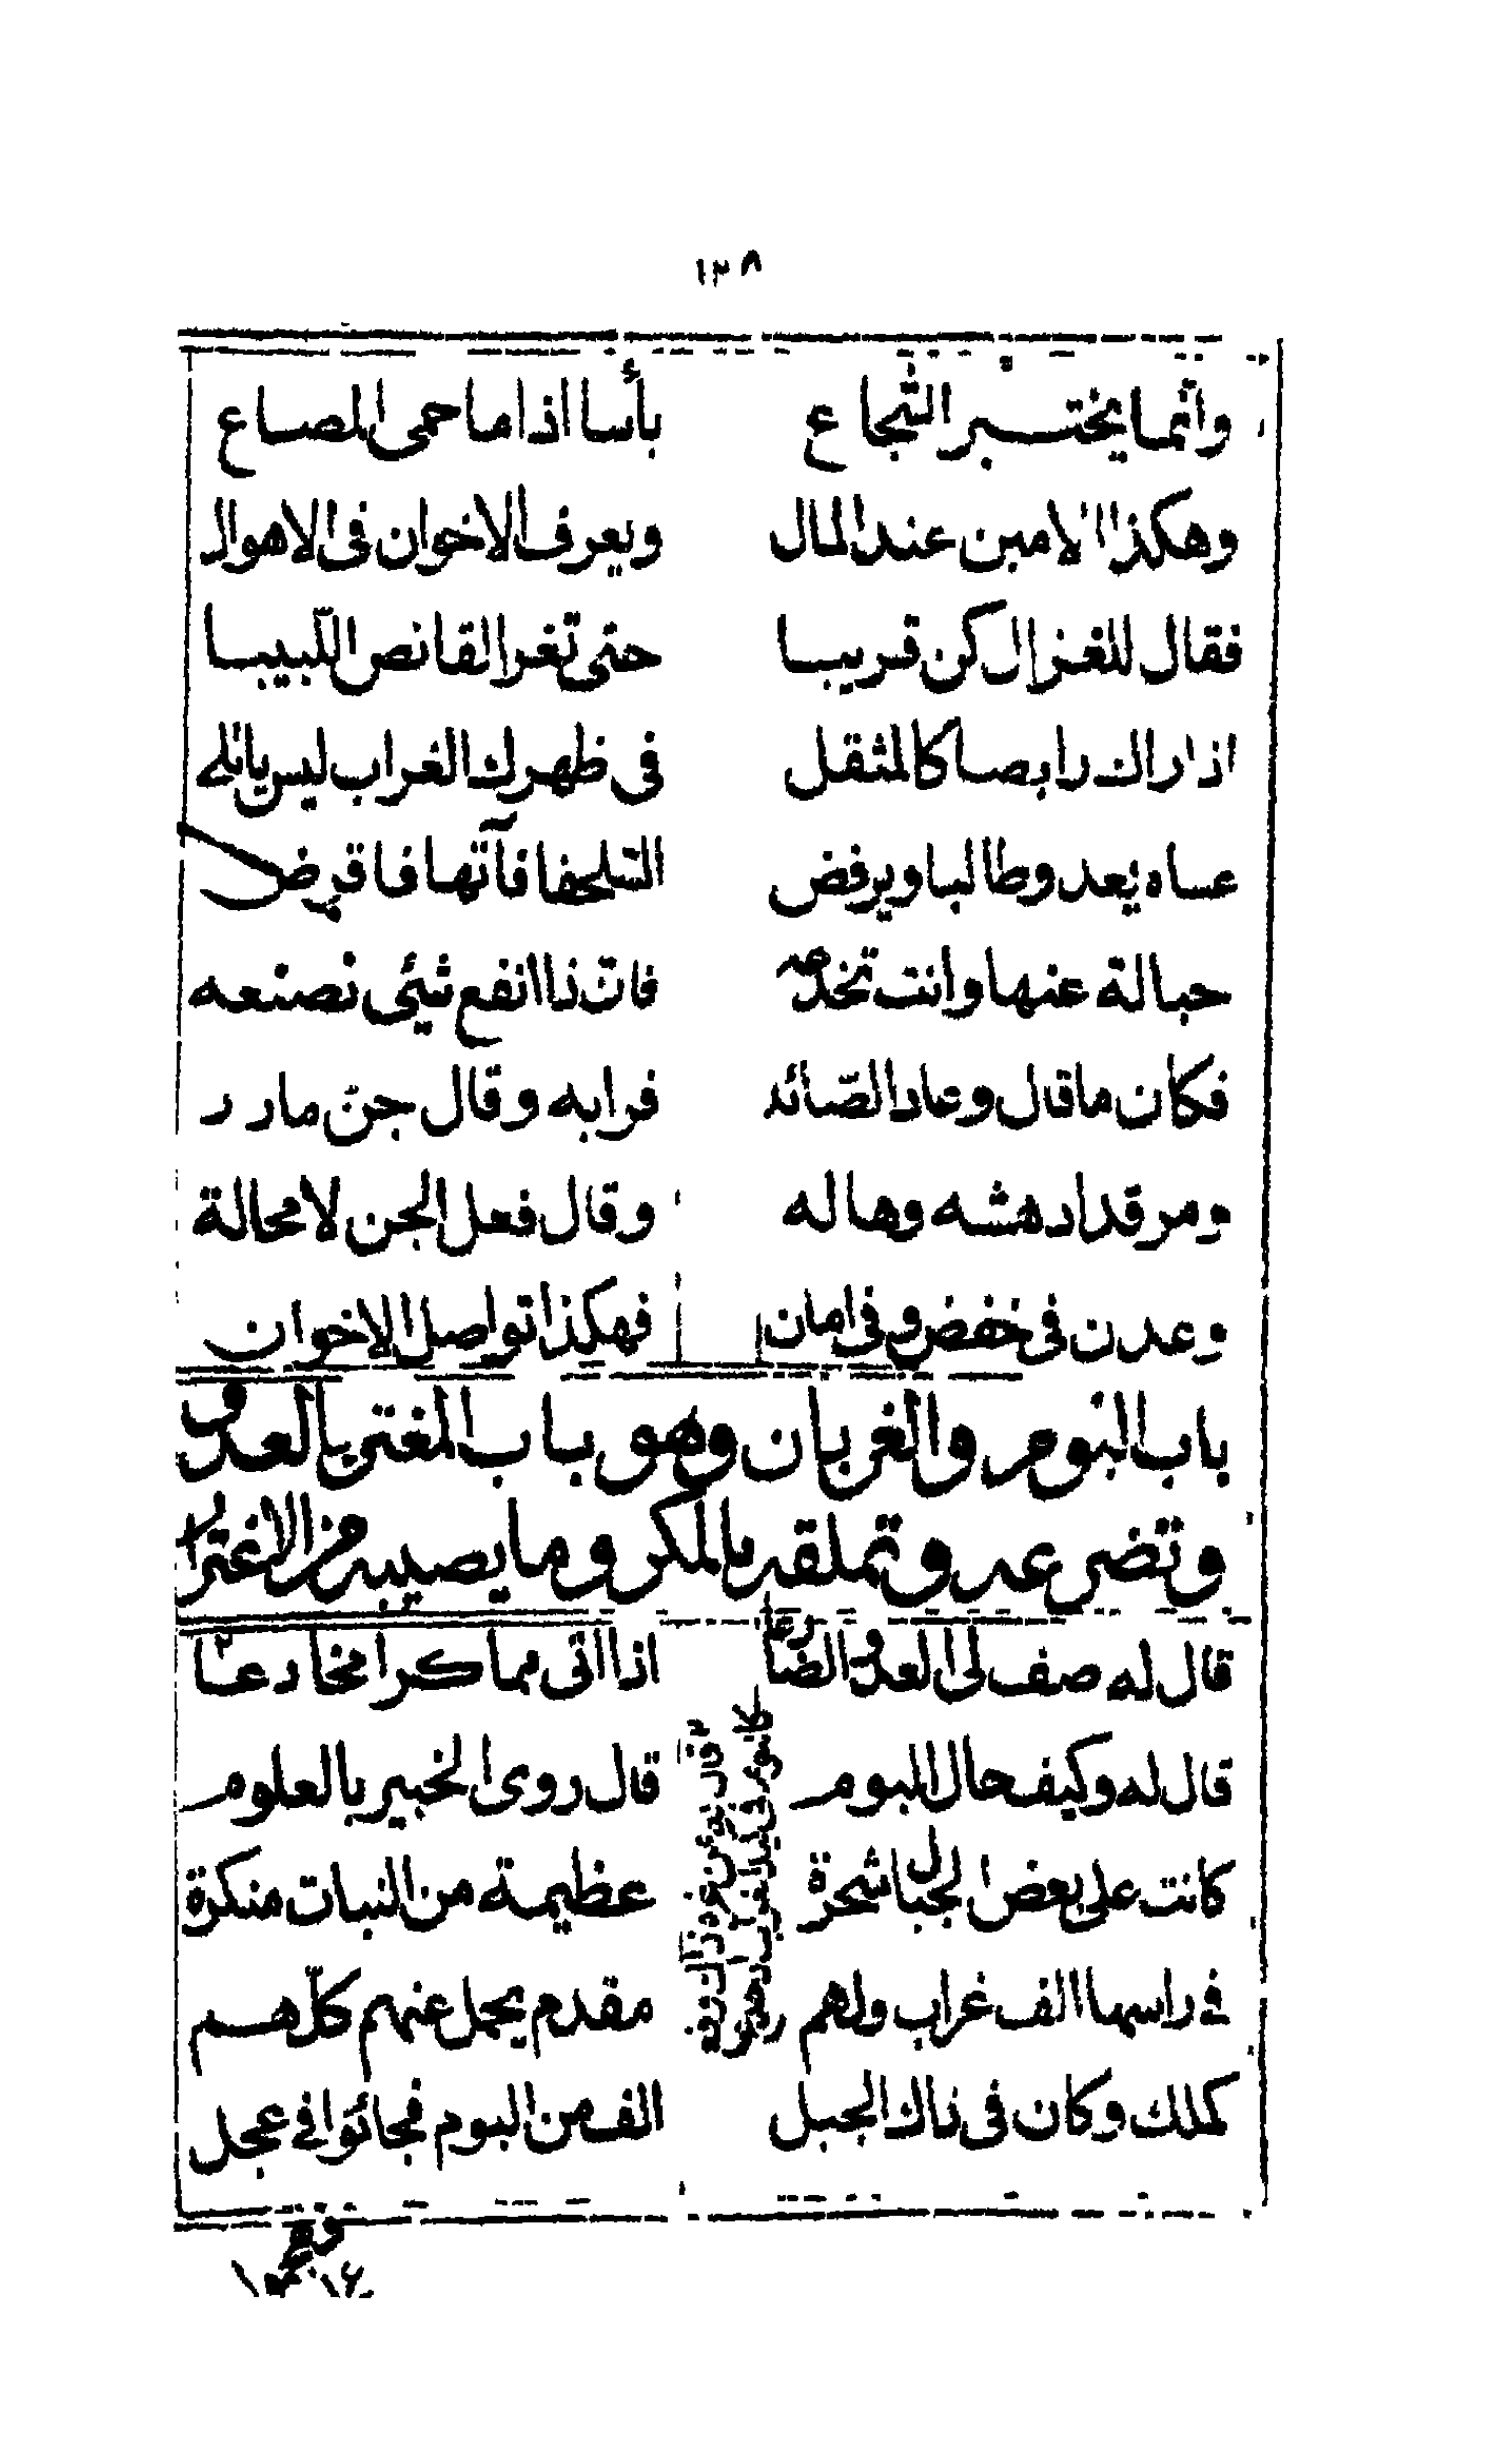 ١٣٨
وانّما يختبر الشّجاع بأسا اذا ما حمى المصاع
وهكذا الامين عند المال ويعرف الاخوان فى الاهوال
فقال للغزال كن قريبا حتى تغر القانص اللّبيبا
اذا راك رابصا كالمثقل فى ظهرك الغراب ليس ياتلي
عساه يعدو طالبا ويرفض السّلحفا فآتها فاقرض
حبالة عنها وانت تخدعه فانّ ذا انفع شيئ نصنعه
فكان ما قال وعاد الصّائد فرابه وقال جنّ مارد
ومر قد ادهشه وهاله وقال فعل الجن لا محالة
وعدن فى خفض وفى امان فهكذا تواصل الاخوان
باب البوم والغربان وهو باب المغتر بالعدو
وتضرعه وتملقه بالمكر وما يصيبه من الاغترار
قال له صف لى العدو الضّارعا اذا اتى مماكرا مخادعا
قال له وكيف حال البوم قال روى الخبير بالعلوم
كانت على بعض الجبال شجرة عظيمة من النبات منكرة
فى راسها الف غراب ولهم مقدم يحمل عنهم كلّ هم
كملك وكان فى ذاك الجبل الف من البوم فجائوا في عجل